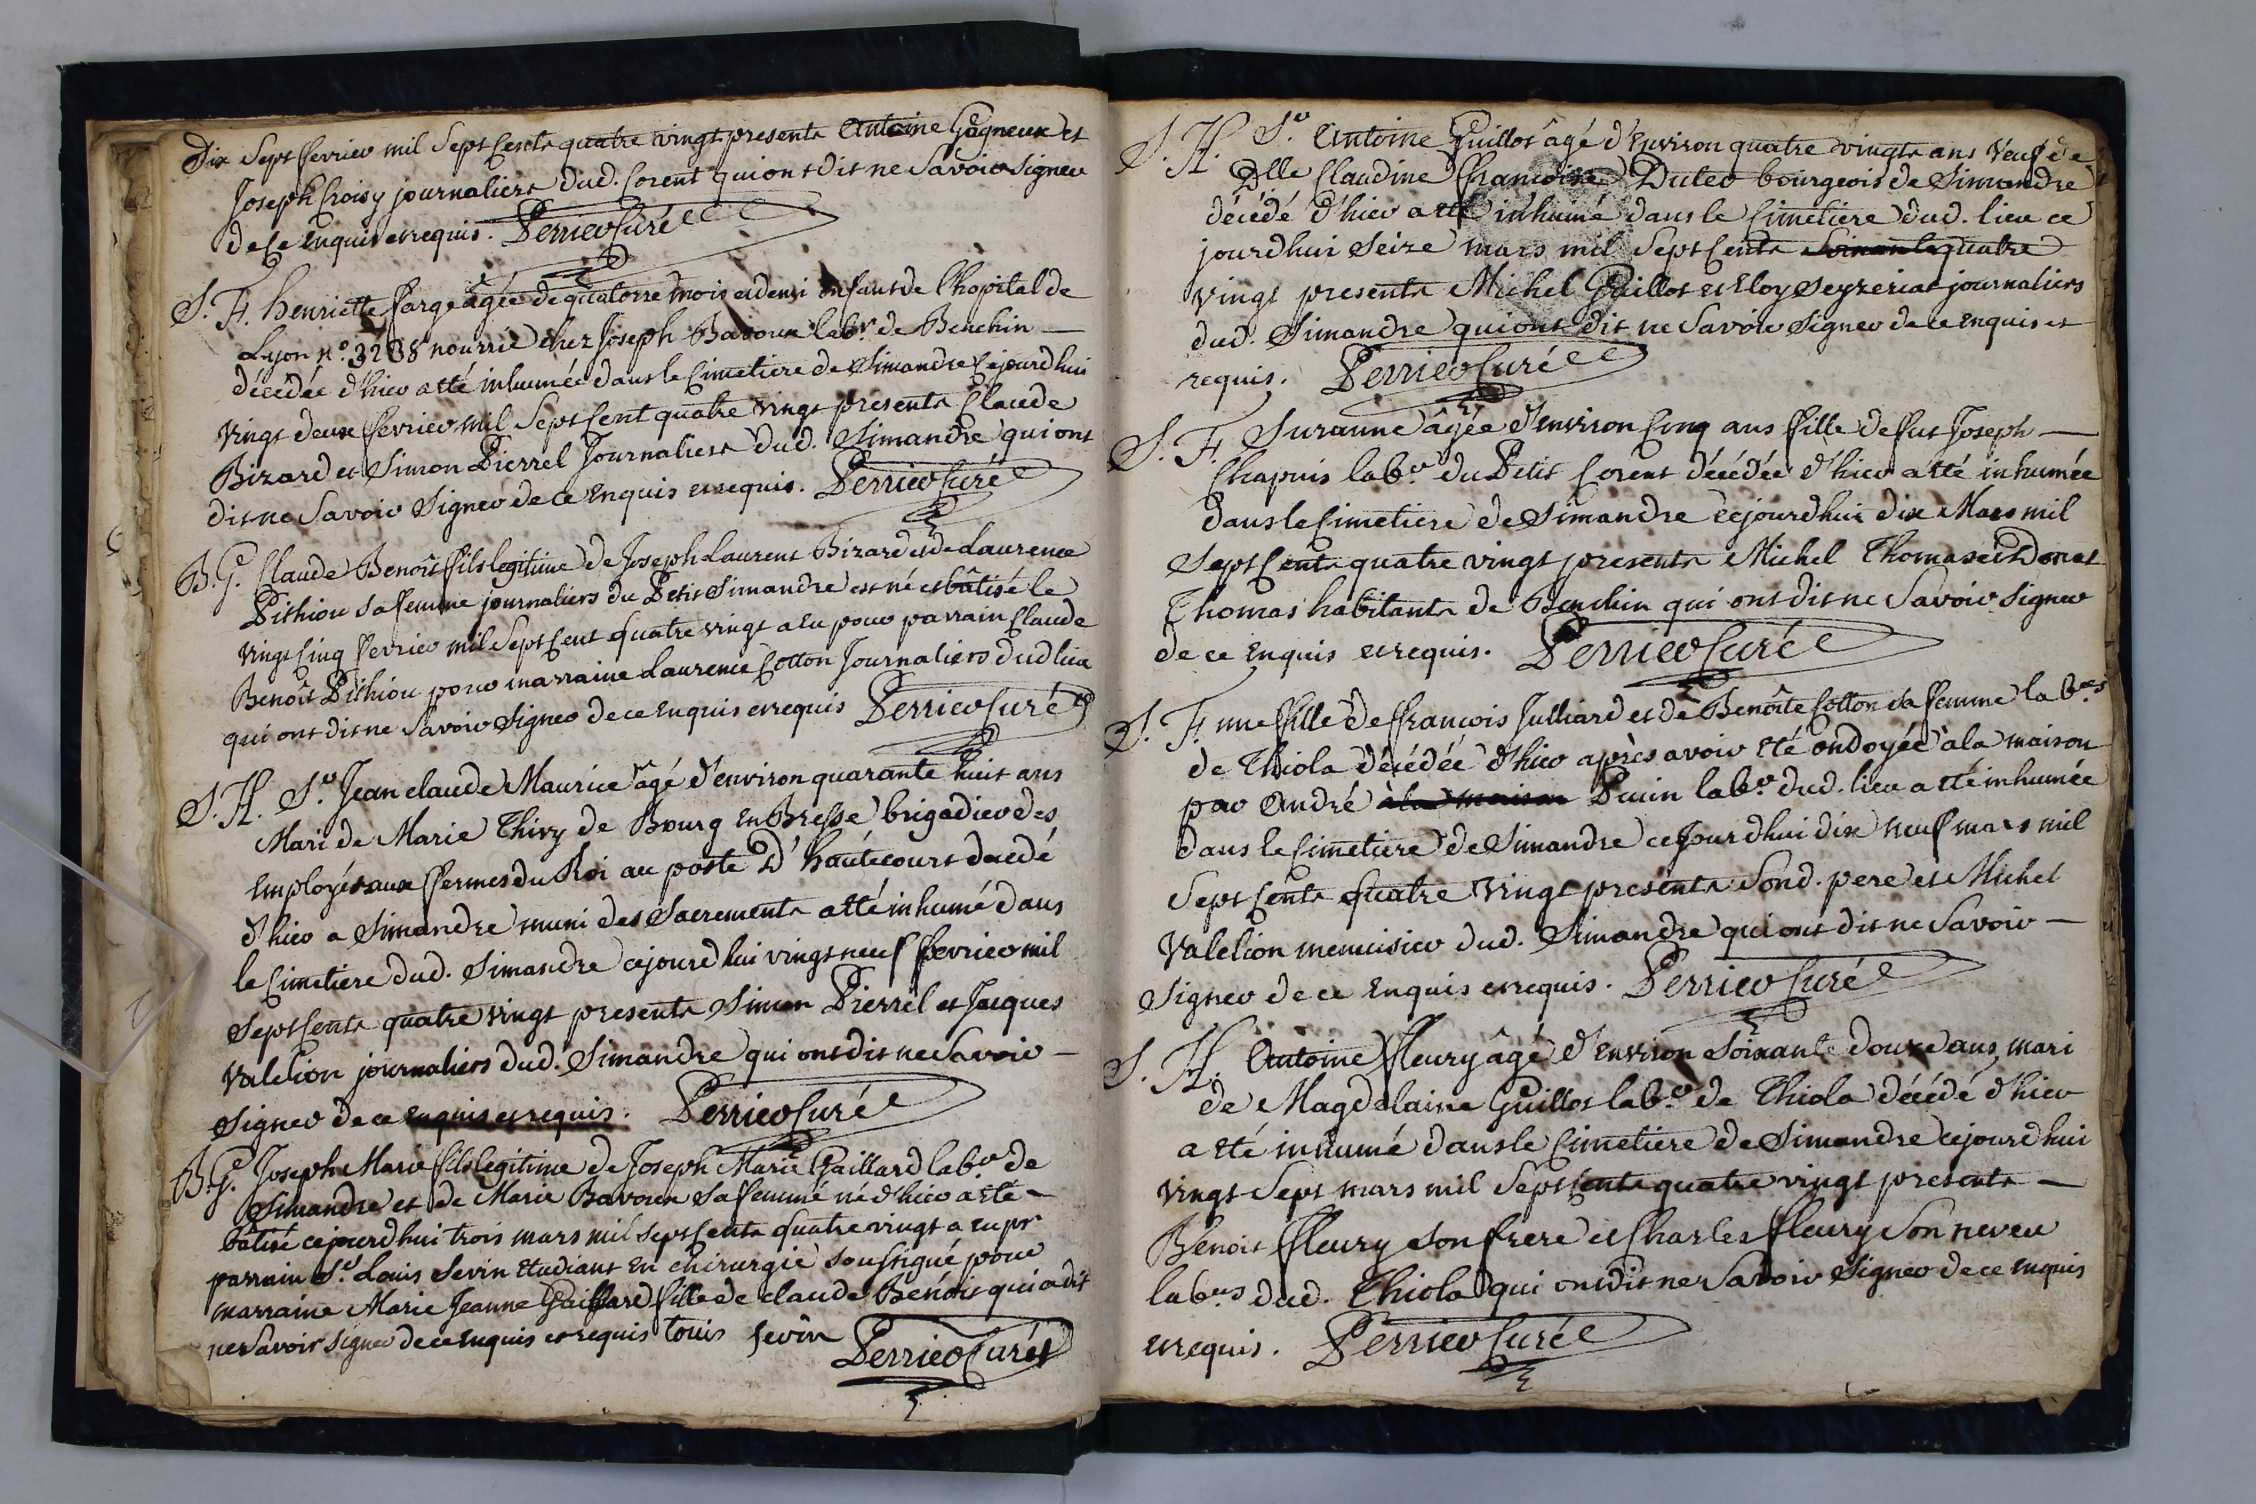 Dix Sept fevrier mil Sept Cents quatre vingt presents Antoine Gagneux et
Joseph Croisy journaliers dud. Corent qui ont dit ne Savoir signer
de ce Enquis et requis. Perrier Curé
S. F. Henriette farge âgée de quatorze mois et demi enfant de l'hopital de
Lyon n.° 3238 nourrie chez Joseph Bavoux lab.r de Benchin —
décédée d'hier a été inhumée dans le Cimetiere de Simandre cejourdhui
vingt deux fevrier mil Sept Cent quatre vingt presents Claude
Bizard et Simon Pierrel Journaliers dud. Simandre qui ont
dit ne Savoir Signer de ce Enquis et requis. Perrier Curé
B. G. Claude Benoît fils legitime de Joseph Laurent Bizard et de Laurence
Pithiou sa femme journaliers du Petit Simandre est né et bâtisé le
vingt Cinq fevrier mil Sept Cent quatre vingt a Eu pour parrain Claude
Benoît Pithiou pour marraine Laurence Cotton Journaliers dud lieu
qui ont dit ne Savoir Signer de ce Enquis et requis Perrier Curé
S. H. S.r Jean claude Maurice âgé d'environ quarante huit ans
Mari de Marie Thivy de Bourg En Bresse brigadier des
Employés aux fermes du Roi au poste d'hautecourt décédé
d'hier a Simandre muni des Sacrements a été inhumé dans
le Cimetiere dud. Simandre cejourdhui vingt neuf fevrier mil
Sept Cents quatre vingt presents Simon Pierrel et Jacques
Valelion journaliers dud. Simandre qui ont dit ne Savoir —
Signer de ce Enquis et requis. Perrier Curé
B. G. Joseph Marie fils legitime de Joseph Marie Gaillard lab.r de
Simandre et de Marie Bavoux Sa femme né d'hier a été —
bâtisé cejourdhui trois mars mil Sept Cents quatre vingt a eu pr
parrain S.r Louis Sevin Etudiant En chirurgie Soussigné pour
marraine Marie Jeanne Gaillard fille de claude Benoit qui a dit
ne Savoir Signer de ce Enquis et requis Louis Sevin
Perrier Curé
S. H. S.r Antoine Guillot âgé d'Environ quatre vingts ans Veuf de
Dlle Claudine Francoise Duteo bourgeois de Simandre
décédé d'hier a été inhumé dans le Cimetiere dud. lieu ce
jourdhui Seize mars mil Sept Cents Soixante quatre
vingt presents Michel Guillot et Eloy Seyzeriat journaliers
dud. Simandre qui ont dit ne Savoir Signer de ce Enquis et
requis. Perrier Curé
S. F. Suzanne âgée d'Environ Cinq ans fille de fut Joseph —
Chapuis lab.r du Petit Corent décédée d'hier a été inhumée
dans le Cimetiere de Simandre cejourdhui dix Mars mil
Sept Cents quatre vingt presents Michel Thomas et Donat
Thomas habitants de Benchin qui ont dit ne Savoir Signer
de ce Enquis et requis. Perrier Curé
S. F. une fille de francois Julliard et de Benoîte Cotton sa femme lab.rs
de Thiola décédée d'hier après avoir Eté ondoyée à la maison
par André à la maison Puvin lab.r dud. lieu a été inhumée
dans le Cimetiere de Simandre ce Jourdhui dix neuf mars mil
Sept Cents quatre vingt presents Sond. pere et Michel
Valelion menuisier dud. Simandre qui ont dit ne Savoir —
Signer de ce Enquis et requis. Perrier Curé
S. H. Antoine fleury âgé d'Environ Soixante douze ans, mari
de Magdelaine Guillot lab.r de Thiola décédé d'hier
a Eté inhumé dans le Cimetiere de Simandre cejourdhui
vingt Sept mars mil Sept Cents quatre vingt presents —
Benoit fleury Son frere et Charles fleury Son neveu
lab.rs dud. Thiola qui ont dit ne Savoir Signer de ce enquis
et requis. Perrier Curé